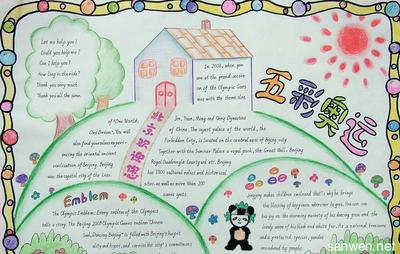 Let me help you!
Could you help me?
Can I help you?
How long is the ride?
Thank you very much.
Thank you all the same.
In 2008, when you
are at the grand
of the Olympic
was with the theme
五彩奥运
of "One World,
One Dream". You will
also find
the ancient oriental
civilization of Beijing. Beijing
was the capital city of the
北京欢迎您
Jin, Yuan, Ming and Qing Dynasties
of China. The palace of the world, the
Forbidden City, is located on the central axis of Bijing city
Together with the Summer Palace a royal park, the Great Wall, Beijing
Royal Courtyard etc, Beijing
has 7300 cultural relics and historical
sites as well as more than 200
scenic spots.
Emblem
The Olympics Emblem: Every emblem of the Olympics
tells a story. The Beijing 2008 Olympic Games emblem "Chinese
Seal, Dancing Beijing" is filled with Beijing's hospit
ality and hopes, and carries the city's commitment
Jingjing makes children smile and that's why he brings
the blessing of happiness wherever he goes. You can see
his joy in the charming naivety of his dancing pose and the
lovely waves of his black and white fur. As a national treasure
and a protected species, pandas
are adored by people
sanwen.net